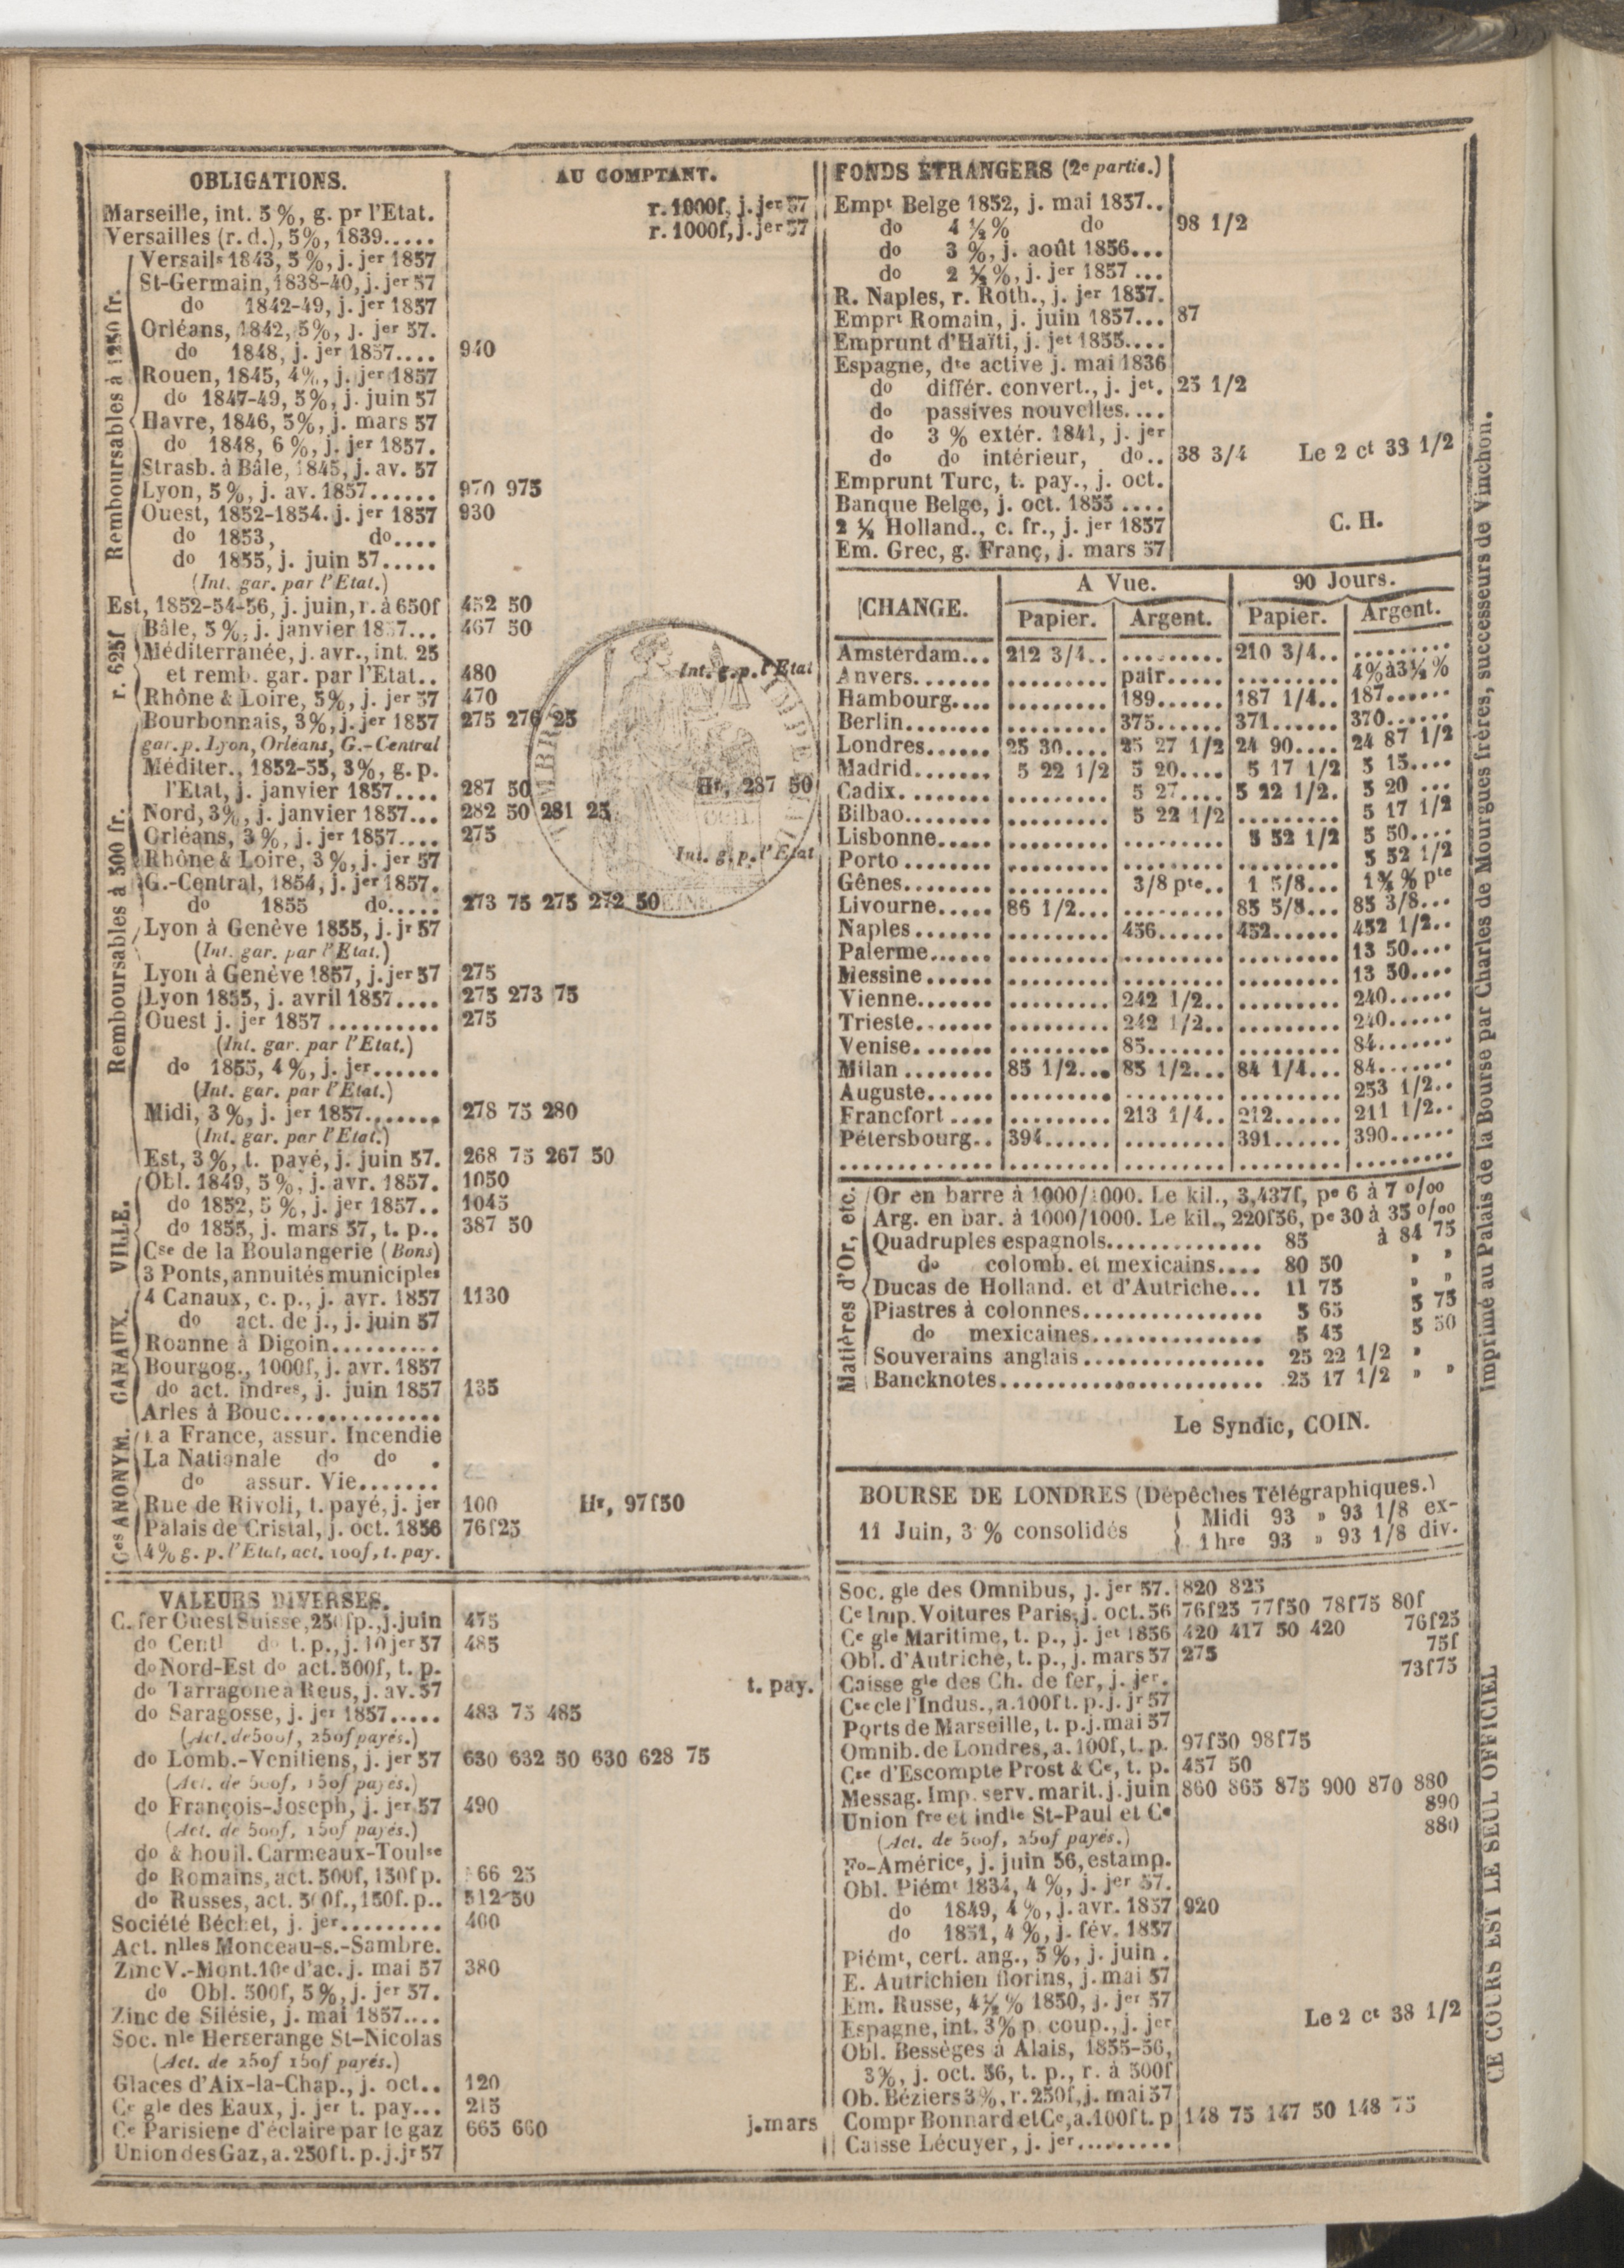 OBLIGATIONS.
AU COMPTANT.
Marseille, int. 5 %, g. pr l'Etat. r. 1000f, j. jer 57
Versailles (r. d.), 5%, 1839..... r. 1000f, j. jer 57
Remboursables à 1250 fr.
Versails 1843, 5 %, j. jer 1857
St-Germain, 1838-40, j. jer 57
do 1842-49, j. jer 1857
Orléans, 1842, 5%, j. jer 57.
do 1848, j. jer 1857.... 940
Rouen, 1845, 4%, j. jer 1857
do 1847-49, 5%, j. juin 57
Havre, 1846, 5%, j. mars 57
do 1848, 6 %, j. jer 1857.
Strasb. à Bâle, 1845, j. av. 57
Lyon, 5%, j. av. 1857...... 970 975
Ouest, 1852-1854. j. jer 1857 930
do 1853, do....
do 1855, j. juin 57.....
(Int. gar. par l'Etat.)
Est, 1852-54-56, j. juin, r. à 650f 452 50
r. 625f
Bâle, 5 %, j. janvier 1857... 467 50
Méditerranée, j. avr., int. 25
et remb. gar. par l'Etat.. 480 Int. g. p. l'Etat
Rhône & Loire, 5%, j. jer 57 470
Remboursables à 500 fr.
Bourbonnais, 3%, j. jer 1857 275 276 25
gar. p. Lyon, Orléans, G.-Central
Méditer., 1852-55, 3%, g. p.
l'Etat, j. janvier 1857.... 287 50 Hr, 287 50
Nord, 3%, j. janvier 1857... 282 50 281 25
Orléans, 3 %, j. jer 1857.... 275
Rhône & Loire, 3 %, j. jer 57 Int. g. p. l'Etat
G.-Central, 1854, j. jer 1857.
do 1855 do..... 273 75 275 272 50
Lyon à Genève 1855, j. jr 57
(Int. gar. par l'Etat.)
Lyon à Genève 1857, j. jer 57 275
Lyon 1855, j. avril 1857.... 275 273 75
Ouest j. jer 1857 .......... 275
(Int. gar. par l'Etat.)
do 1855, 4%, j. jer......
(Int. gar. par l'Etat.)
Midi, 3 %, j. jer 1857....... 278 75 280
(Int. gar. par l'Etat.)
Est, 3%, t. payé, j. juin 57. 268 75 267 50
VILLE.
Obl. 1849, 5 %, j. avr. 1857. 1050
do 1852, 5 %, j. jer 1857.. 1045
do 1855, j. mars 57, t. p.. 387 50
Cse de la Boulangerie (Bons)
3 Ponts, annuités municiples
CANAUX.
4 Canaux, c. p., j. avr. 1857 1130
do act. de j., j. juin 57
Roanne à Digoin..........
Bourgog., 1000f, j. avr. 1857
do act. indres, j. juin 1857 135
Arles à Bouc..............
Ces ANONYM.
La France, assur. Incendie
La Nationale do do .
do assur. Vie.......
Rue de Rivoli, t. payé, j. jer 100 Hr, 97f50
Palais de Cristal, j. oct. 1856 76f25
4% g. p. l'Etat, act. 100f, t. pay.
VALEURS DIVERSES.
C. fer Ouest Suisse, 250fp., j. juin 475
do Centl do t. p., j. 10 jer 57 485
do Nord-Est do act. 500f, t. p.
do Tarragone à Reus, j. av. 57 t. pay.
do Saragosse, j. jer 1857..... 483 75 485
(Act. de 500f, 250f payés.)
do Lomb.-Venitiens, j. jer 57 630 632 50 630 628 75
(Act. de 500f, 150f payés.)
do François-Joseph, j. jer 57 490
(Act. de 500f, 150f payés.)
do & houil. Carmeaux-Toulse
do Romains, act. 500f, 150f p. 66 25
do Russes, act. 500f., 150f. p.. 512 50
Société Béchet, j. jer......... 400
Act. nlles Monceau-s.-Sambre.
Zinc V.-Mont. 10e d'ac. j. mai 57 380
do Obl. 500f, 5%, j. jer 57.
Zinc de Silésie, j. mai 1857....
Soc. nle Herserange St-Nicolas
(Act. de 250f 150f payés.)
Glaces d'Aix-la-Chap., j. oct.. 120
Ce gle des Eaux, j. jer t. pay... 215
Ce Parisiene d'éclaire par le gaz 665 660 j. mars
Union des Gaz, a. 250f t. p. j. jr 57
FONDS ÉTRANGERS (2e partie.)
Empt Belge 1852, j. mai 1857..
do 4 ½ % do 98 1/2
do 3 %, j. août 1856...
do 2 ½ %, j. jer 1857 ...
R. Naples, r. Roth., j. jer 1857.
Emprt Romain, j. juin 1857... 87
Emprunt d'Haïti, j. jet 1855....
Espagne, dte active j. mai 1836
do différ. convert., j. jet. 25 1/2
do passives nouvelles....
do 3 % extér. 1841, j. jer
do do intérieur, do.. 38 3/4 Le 2 ct 38 1/2
Emprunt Turc, t. pay., j. oct.
Banque Belge, j. oct. 1855 ....
2 ½ Holland., c. fr., j. jer 1857 C. H.
Em. Grec, g. Franç, j. mars 57
CHANGE. A Vue. 90 Jours.
Papier. Argent. Papier. Argent.
Amsterdam... 212 3/4.. ......... 210 3/4.. .........
Anvers....... ......... pair..... ......... 4% à 3½ %
Hambourg.... ......... 189...... 187 1/4.. 187......
Berlin........ ......... 375...... 371...... 370......
Londres...... 25 30.... 25 27 1/2 24 90.... 24 87 1/2
Madrid....... 5 22 1/2 5 20.... 5 17 1/2 5 15....
Cadix........ ......... 5 27.... 5 22 1/2. 5 20 ...
Bilbao........ ......... 5 22 1/2 ......... 5 17 1/2
Lisbonne..... ......... ......... 5 52 1/2 5 50....
Porto ........ ......... ......... ......... 5 52 1/2
Gênes........ ......... 3/8 pte.. 1 5/8... 1¾ % pte
Livourne..... 86 1/2... ......... 85 5/8... 85 3/8...
Naples....... ......... 456...... 452...... 452 1/2..
Palerme...... ......... ......... ......... 13 50....
Messine ...... ......... ......... ......... 13 50....
Vienne....... ......... 242 1/2.. ......... 240......
Trieste....... ......... 242 1/2.. ......... 240......
Venise....... ......... 85....... ......... 84.......
Milan ........ 85 1/2... 85 1/2... 84 1/4... 84.......
Auguste...... ......... ......... ......... 253 1/2..
Francfort .... ......... 213 1/4.. 212...... 211 1/2..
Pétersbourg.. 394...... ......... 391...... 390......
Matières d'Or, etc.
Or en barre à 1000/1000. Le kil., 3,437f, pe 6 à 7 0/00
Arg. en bar. à 1000/1000. Le kil., 220f56, pe 30 à 35 0/00
Quadruples espagnols.............. 85 à 84 75
do colomb. et mexicains.... 80 50 » »
Ducas de Holland. et d'Autriche... 11 75 » »
Piastres à colonnes................ 5 65 5 75
do mexicaines............... 5 45 5 50
Souverains anglais................ 25 22 1/2 »
Bancknotes....................... 25 17 1/2 » »
Le Syndic, COIN.
BOURSE DE LONDRES (Dépêches Télégraphiques.)
11 Juin, 3 % consolidés
Midi 93 » 93 1/8 ex-
1 hre 93 » 93 1/8 div.
Soc. gle des Omnibus, j. jer 57. 820 825
Ce Imp. Voitures Paris, j. oct. 56 76f25 77f50 78f75 80f
76f25
Ce gle Maritime, t. p., j. jet 1856 420 417 50 420
75f
Obl. d'Autriche, t. p., j. mars 57 275
73f75
Caisse gle des Ch. de fer, j. jer.
Cse cle l'Indus., a. 100f t. p. j. jr 57
Ports de Marseille, t. p. j. mai 57
Omnib. de Londres, a. 100f, t. p. 97f50 98f75
Cse d'Escompte Prost & Ce, t. p. 457 50
Messag. Imp. serv. marit. j. juin 860 865 875 900 870 880
890
Union fre et indle St-Paul et Ce
880
(Act. de 500f, 250f payés.)
Fo-Américe, j. juin 56, estamp.
Obl. Piémt 1834, 4 %, j. jer 57.
do 1849, 4 %, j. avr. 1857 920
do 1851, 4 %, j. fév. 1857
Piémt, cert. ang., 5 %, j. juin .
E. Autrichien florins, j. mai 57
Em. Russe, 4½ % 1850, j. jer 57
Espagne, int. 3% p. coup., j. jer Le 2 ct 38 1/2
Obl. Bessèges à Alais, 1855-56,
3%, j. oct. 56, t. p., r. à 500f
Ob. Béziers 3%, r. 250f, j. mai 57
Compr Bonnard et Ce, a. 100f t. p 148 75 147 50 148 75
Caisse Lécuyer, j. jer.........
Imprimé au Palais de la Bourse par Charles de Mourgues frères, successeurs de Vinchon.
CE COURS EST LE SEUL OFFICIEL